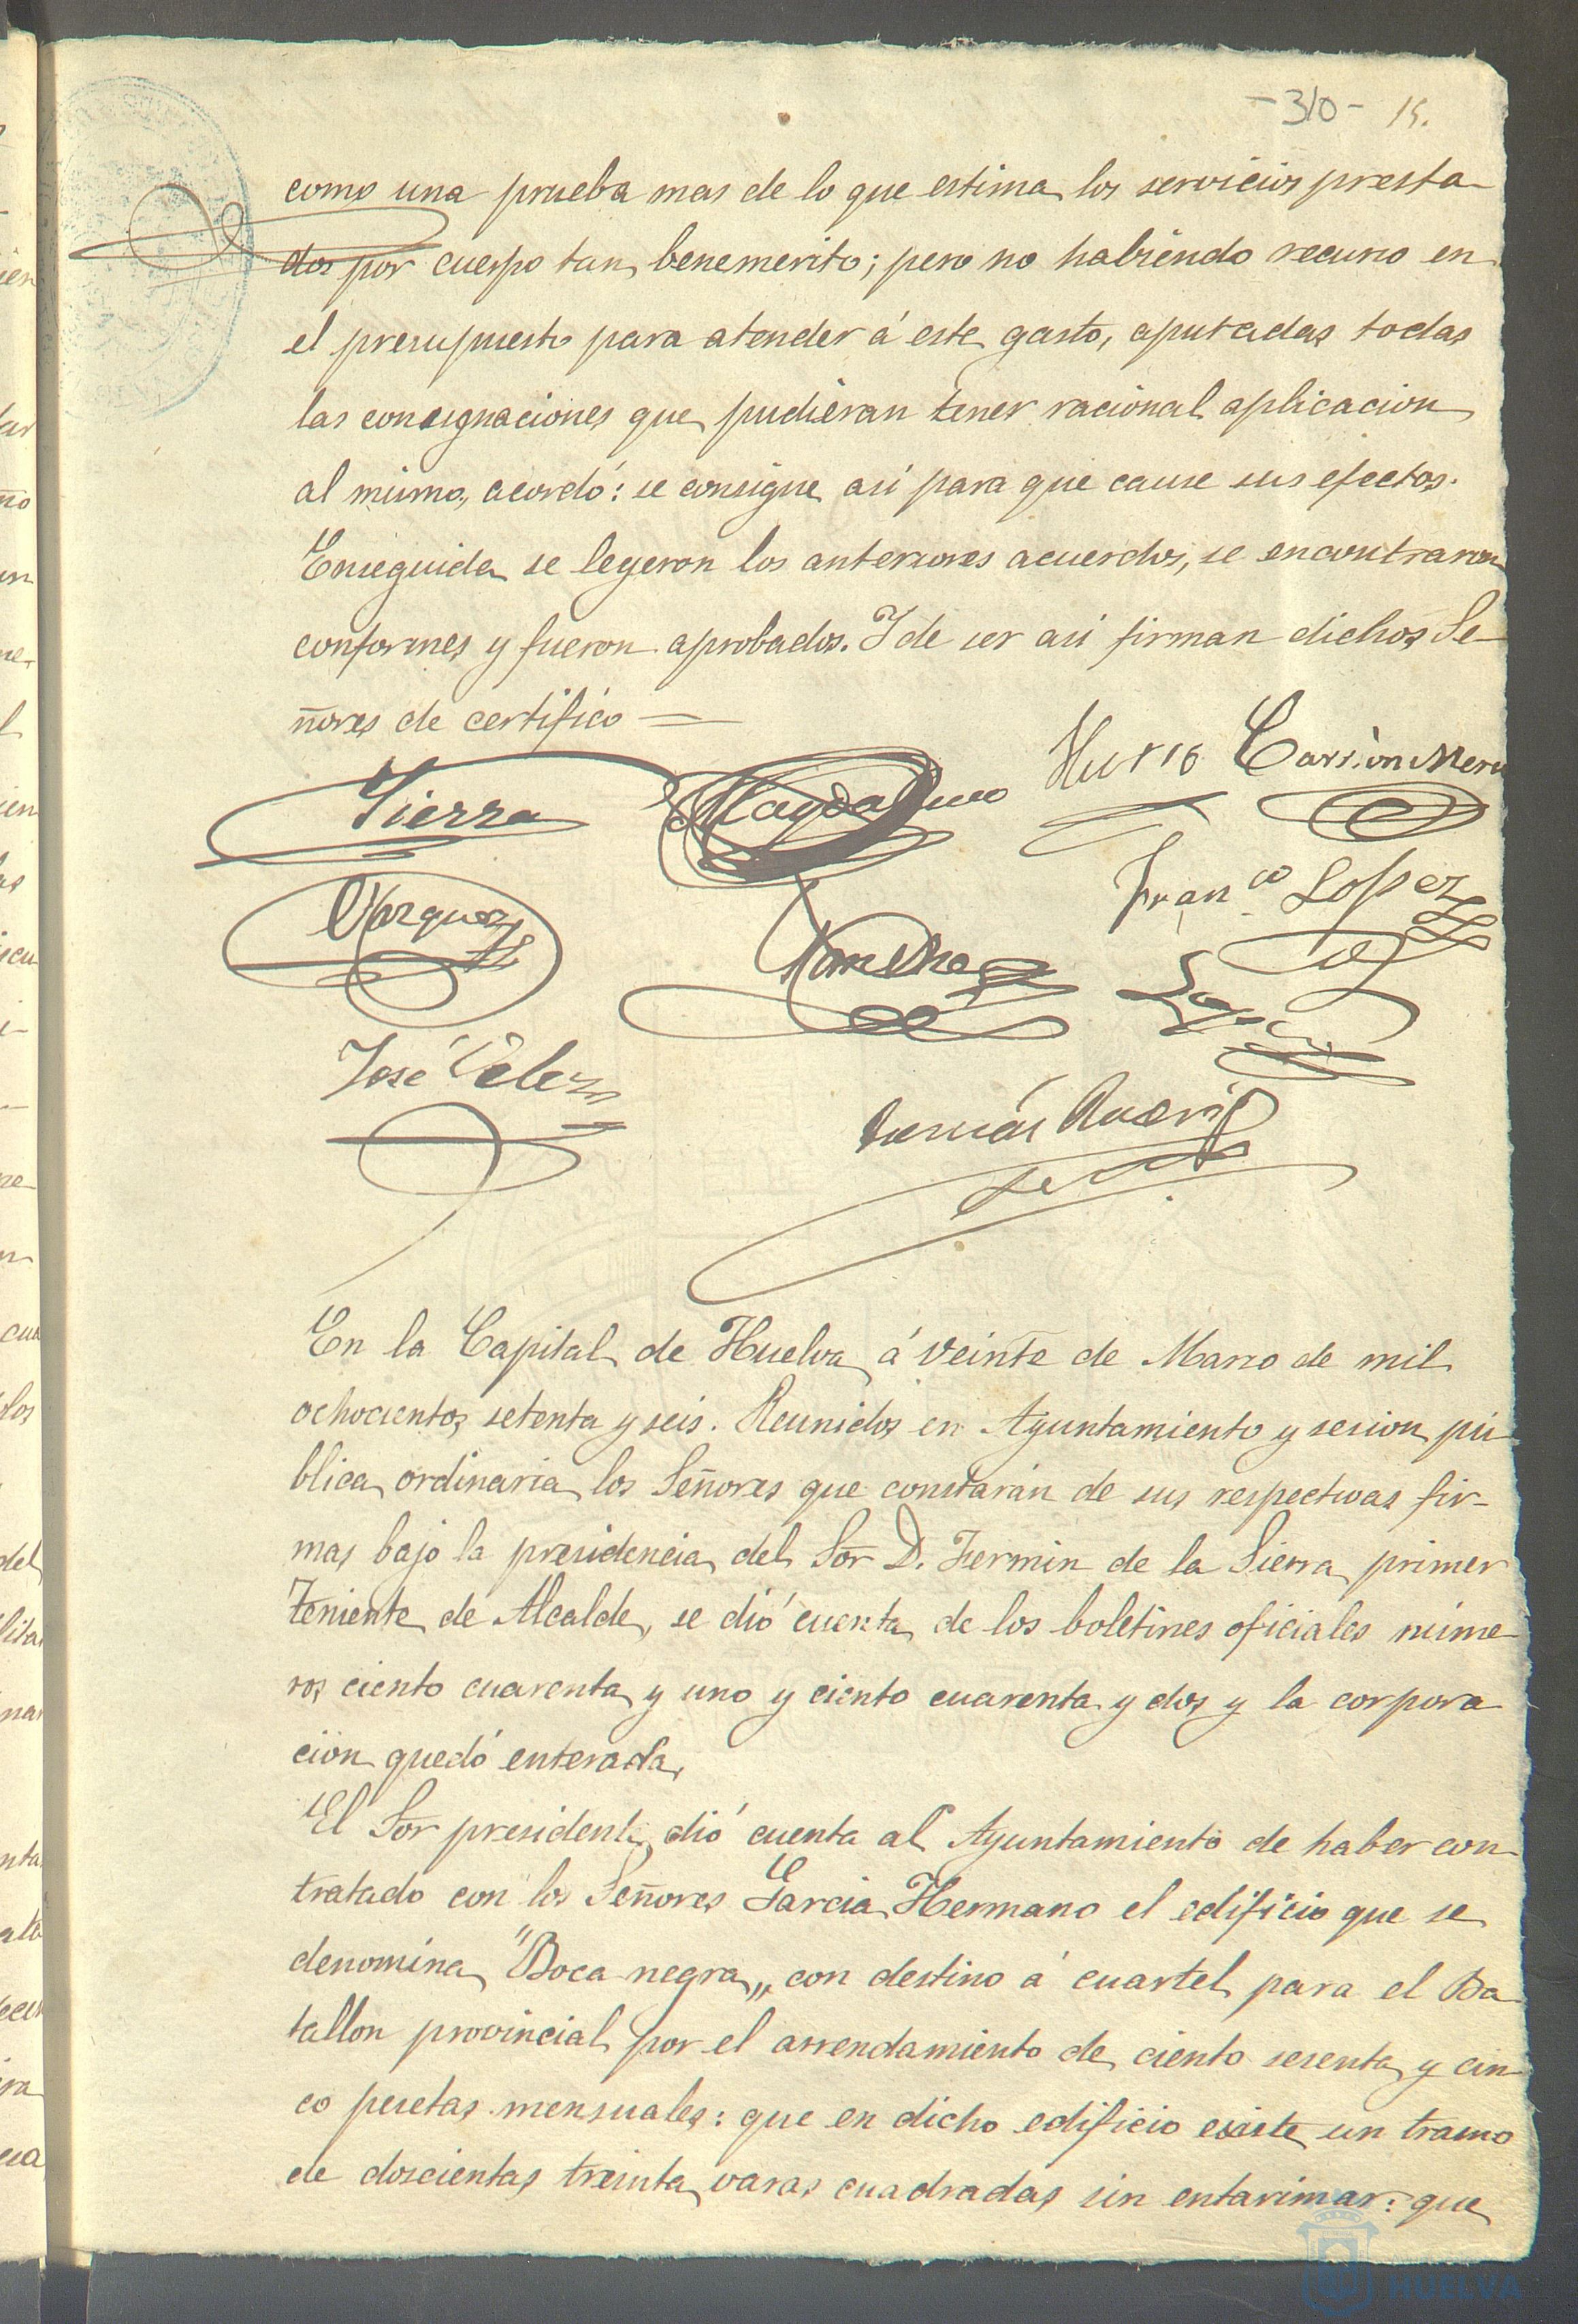 -310- 15.
como una prueba mas de lo que estima los servicios presta-
dos por cuerpo tan benemerito; pero no habiendo recurso en
el presupuesto para atender á este gasto, apuradas todas
las consignaciones que pudieran tener racional aplicacion
al mismo, acordó: se consigne asi para que cause sus efectos.
Enseguida se leyeron los anteriores acuerdos, se encontraron
conformes y fueron aprobados. Y de ser asi firman dichos Se-
ñores de certifico =
Sierra Magdaleno Carrion
Vazquez Sanchez Franco Lopez
Lopez
José Velez
En la Capital de Huelva á veinte de Marzo de mil
ochocientos setenta y seis. Reunidos en Ayuntamiento y sesion pú
blica ordinaria los Señores que constarán de sus respectivas fir-
mas bajo la presidencia del Sor D. Fermin de la Sierra primer
Teniente de Alcalde, se dió cuenta de los boletines oficiales núme-
ros ciento cuarenta y uno y ciento cuarenta y dos y la corpora
cion quedó enterada.
El Sor presidente dió cuenta al Ayuntamiento de haber con-
tratado con los Señores Garcia Hermano el edificio que se
denomina "Boca negra„ con destino á cuartel para el Ba-
tallon provincial por el arrendamiento de ciento sesenta y cin-
co pesetas mensuales: que en dicho edificio existe un tramo
de doscientas treinta varas cuadradas sin entarimar: que
HUELVA